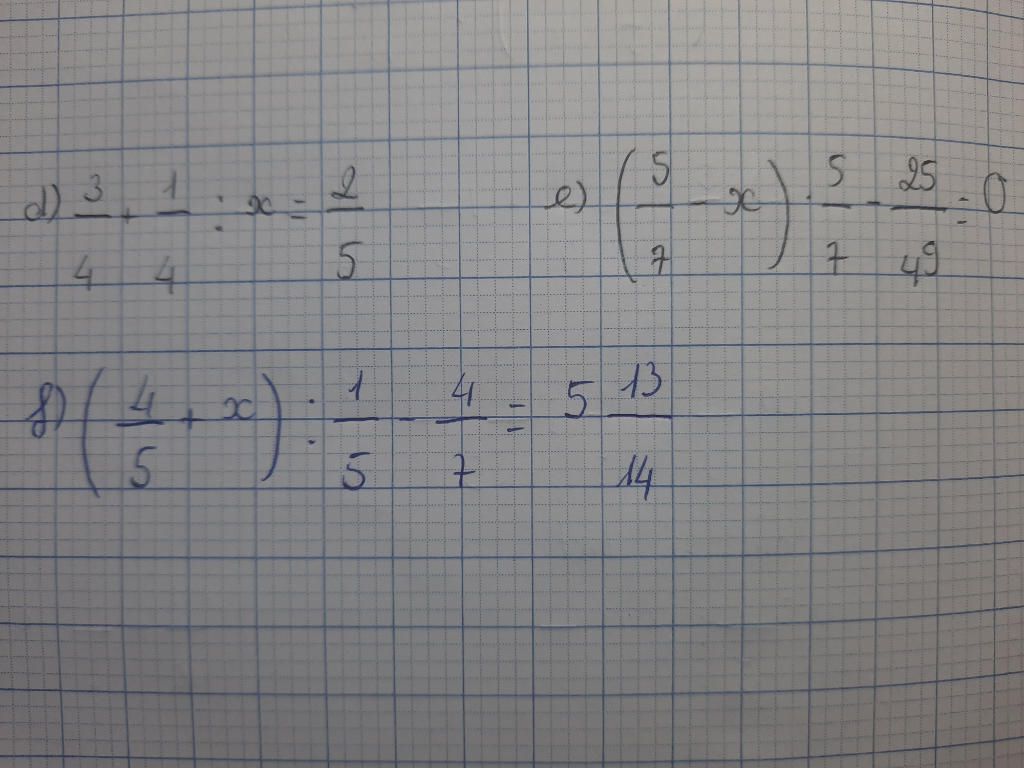 d) 3/4 + 1/4 : x = 2/5
e) (5/7 - x) . 5/7 - 25/49 = 0
f) (4/5 + x) : 1/5 - 4/7 = 5 13/14